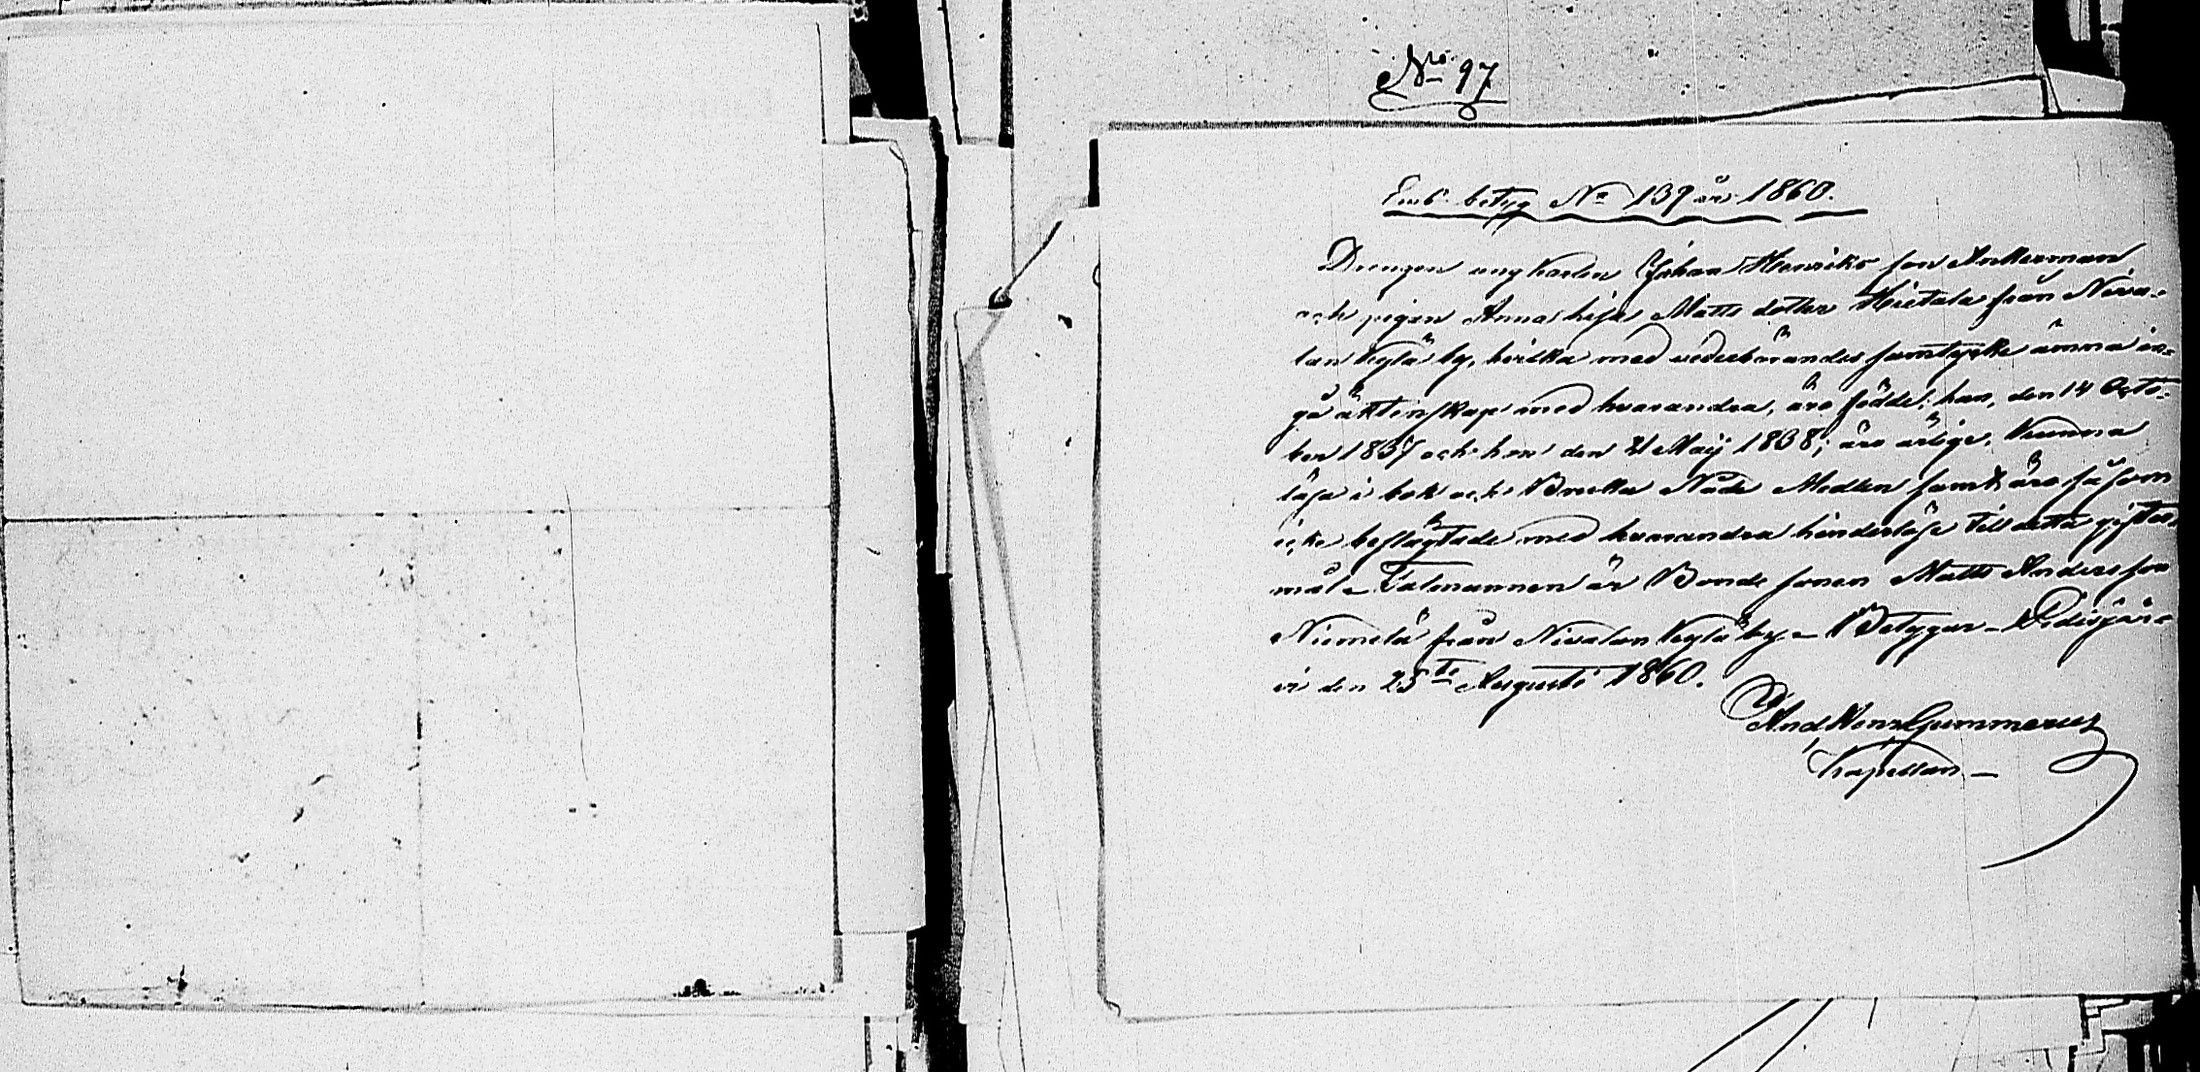 Nro 97
Emb. betyg No 139 år 1860.
Drengen ung karlen Johan Henriks son Ankerman
och pigan Anna Lisa Matts dotter Hietala från Niva-
lan Kylä by, hvilka med vederbörandes samtycke ämna in-
gå äktenskap med hvarandra, äro födde, han, den 14 Octo-
ber 1837 och hon den 21 Maij 1838; äro ärlige, kunna
läsa i bok och bruka Nåde Medlen samt äro såsom
icke beslägtade med hvarandra hinderlöse till detta gifter-
mål. Talmannen är Bonde sonen Matts Andersson
Niemelä från Nivalan Kylä by. – Betygar – Pidisjär-
vi den 25te Augusti 1860.
And Henr Gummerus
Kapellan –